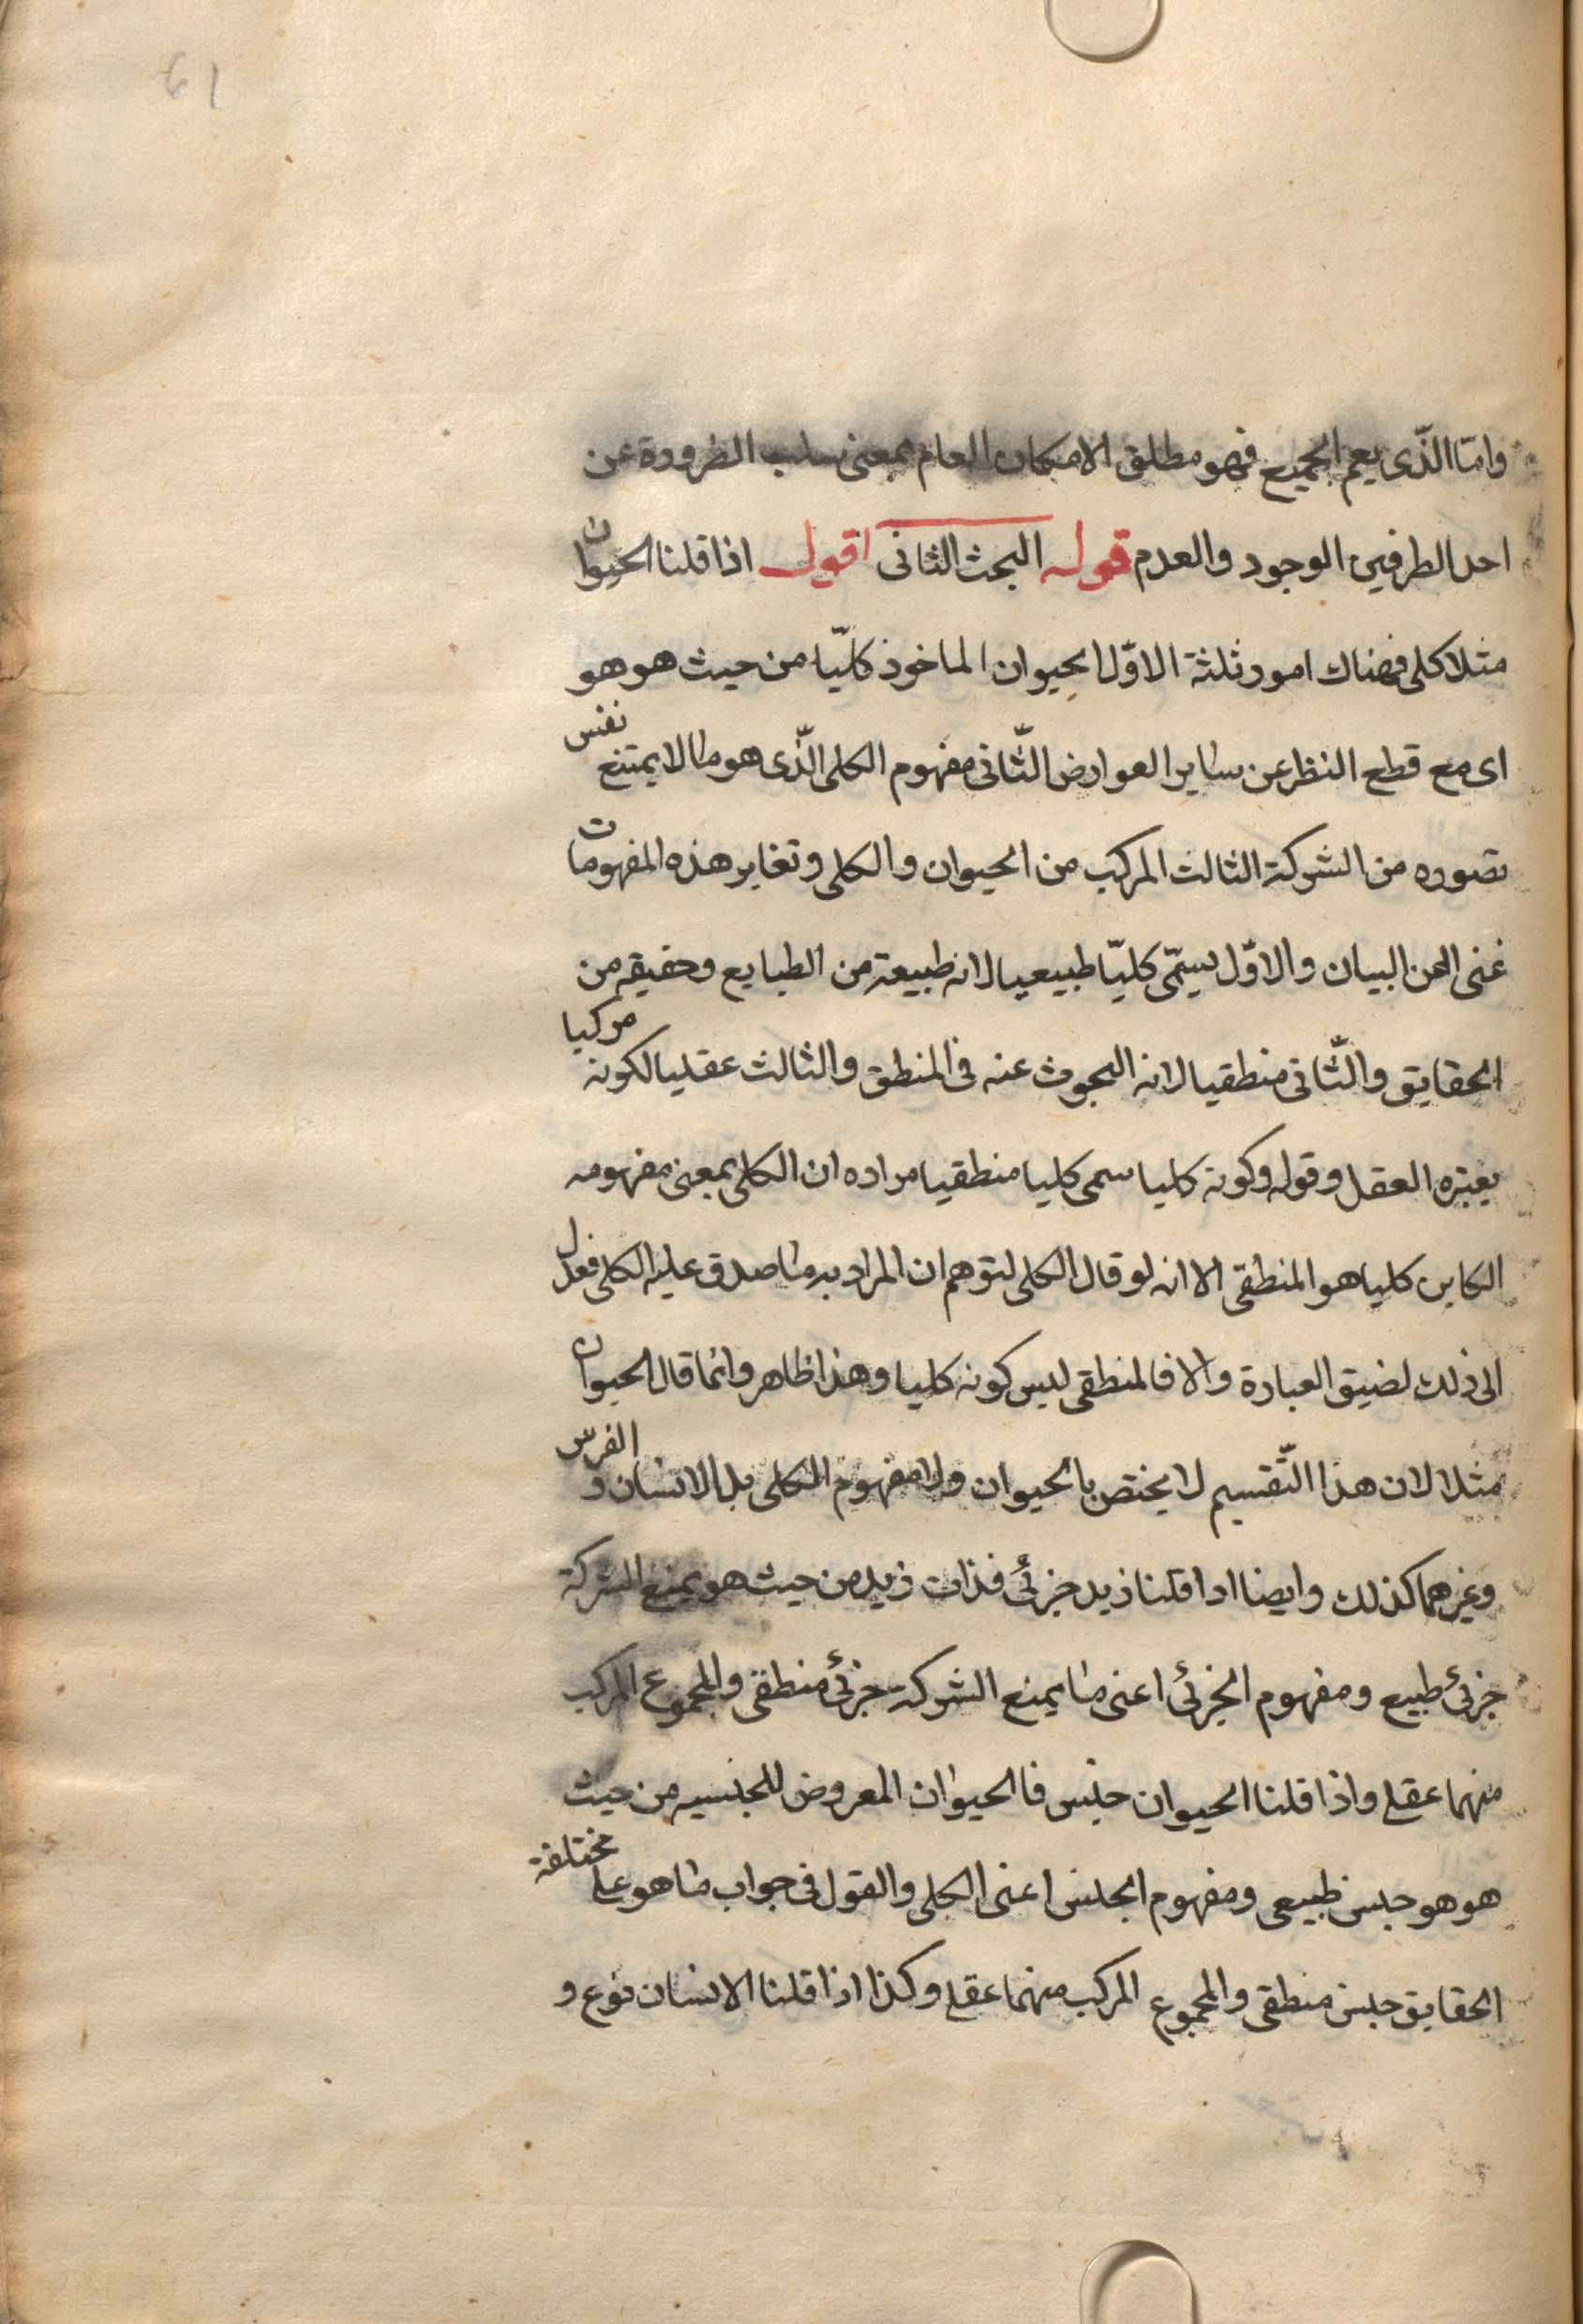 61
وامّا الذّى يعم الجميع فهو مطلق الامكان العام بمعنى سلب الضرورة عن
احد الطرفين الوجود والعدم قوله البحث الثانى اقول اذا قلنا الحيوان
مثلا كلى فهناك امور ثلثة الاوّل الحيوان الماخوذ كليّا من حيث هو هو
اى مع قطع النظر عن ساير العوارض الثّانى مفهوم الكلى الذّى هو ما لا يمتنع نفس
تصوره من الشركة الثالث المركب من الحيوان والكلى وتغاير هذه المفهومات
غنى الـعن البيان والاوّل يسمّى كليّا طبيعيا لانه طبيعة من الطبايع وحقيقه من
الحقايق والثّانى منطقيا لانه البحوث عنه فى المنطق والثالث عقليا لكونه مركبا
يعتبره العقل وقوله وكونه كليا سمى كليا منطقيا مراده ان الكلى بمعنى مفهومه
الكاين كليا هو المنطقى الا انه لو قال الكلى لتوهم ان المراد به ما صدق عليه الكلى فعدل
الى ذلك لضيق العبارة والا فالمنطقى ليس كونه كليا وهذا ظاهر وانما قال الحيوان
مثلا لان هذا التّقسيم لا يختص بالحيوان ولا مفهوم الكلى بل الانسان و الفرس
وغيرهما كذلك وايضا اذا قلنا زيد جزئى فذات زيد من حيث هو يمنع الشركة
جزئى طبيع ومفهوم الجزئى اعنى ما يمنع الشركة جزئى منطقى والمجموع المركب
منهما عقلى واذا قلنا الحيوان جنس فالحيوان المعروض للجنسيه من حيث
هو هو جنس طبيعى ومفهوم الجنس اعنى الكلى والمقول فى جواب ما هو على مختلفة
الحقايق جنس منطقى والمجموع المركب منهما عقلى وكذا اذا قلنا الانسان نوع و